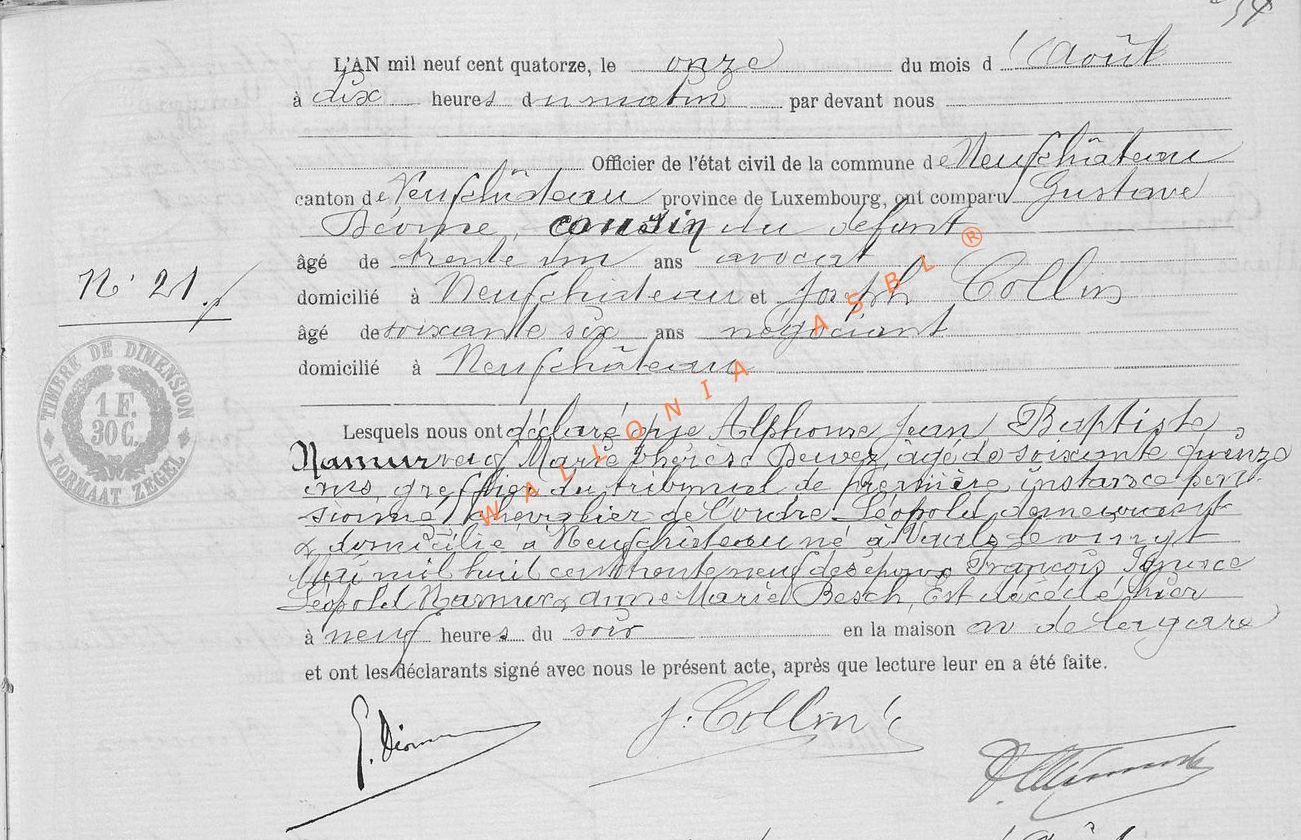 54
L'AN mil neuf cent quatorze, le onze du mois d'Août
à dix heures du matin par devant nous
Officier de l'état civil de la commune de Neufchâteau
canton de Neufchâteau province de Luxembourg, ont comparu Gustave
cousin du défunt
âgé de trente un ans avocat
N° 21.
domicilié à Neufchateau et Joseph Collin
âgé de soixante six ans négociant
domicilié à Neufchâteau
TIMBRE DE DIMENSION
1 F.
30 C.
FORMAAT ZEGEL
WALLONIA ASBL ®
Lesquels nous ont déclaré que Alphonse Jean Baptiste
Namur Marie Thérèse Dewez, âgé de soixante quinze
ans, greffier du tribunal de première instance pen-
sionné, chevalier de l'ordre Léopold, demeurant
& domicilié à Neufchâteau né à le vingt
Mai mil huit cent trente neuf des époux François Ignace
Léopold Namur & Anne Marie Besch, Est décédé hier
à neuf heures du soir en la maison de la gare
et ont les déclarants signé avec nous le présent acte, après que lecture leur en a été faite.
J. Collin